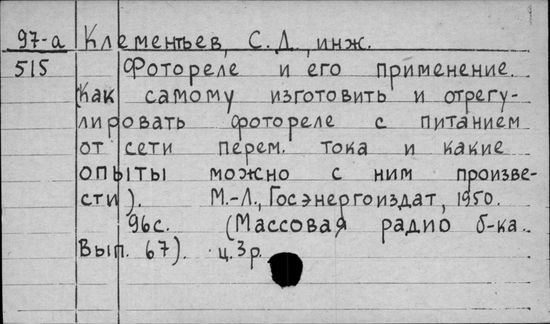 97-а Клементьев, С.Д., инж.
515 Фотореле и его применение.
(Как самому изготовить и отрегу-
лировать фотореле с питанием
от сети перем. тока и какие
опыты можно с ним произве-
сти). М.-Л., Госэнергоиздат, 1950.
96с. (Массовая радио б-ка.
Вып. 67). ц.3р.